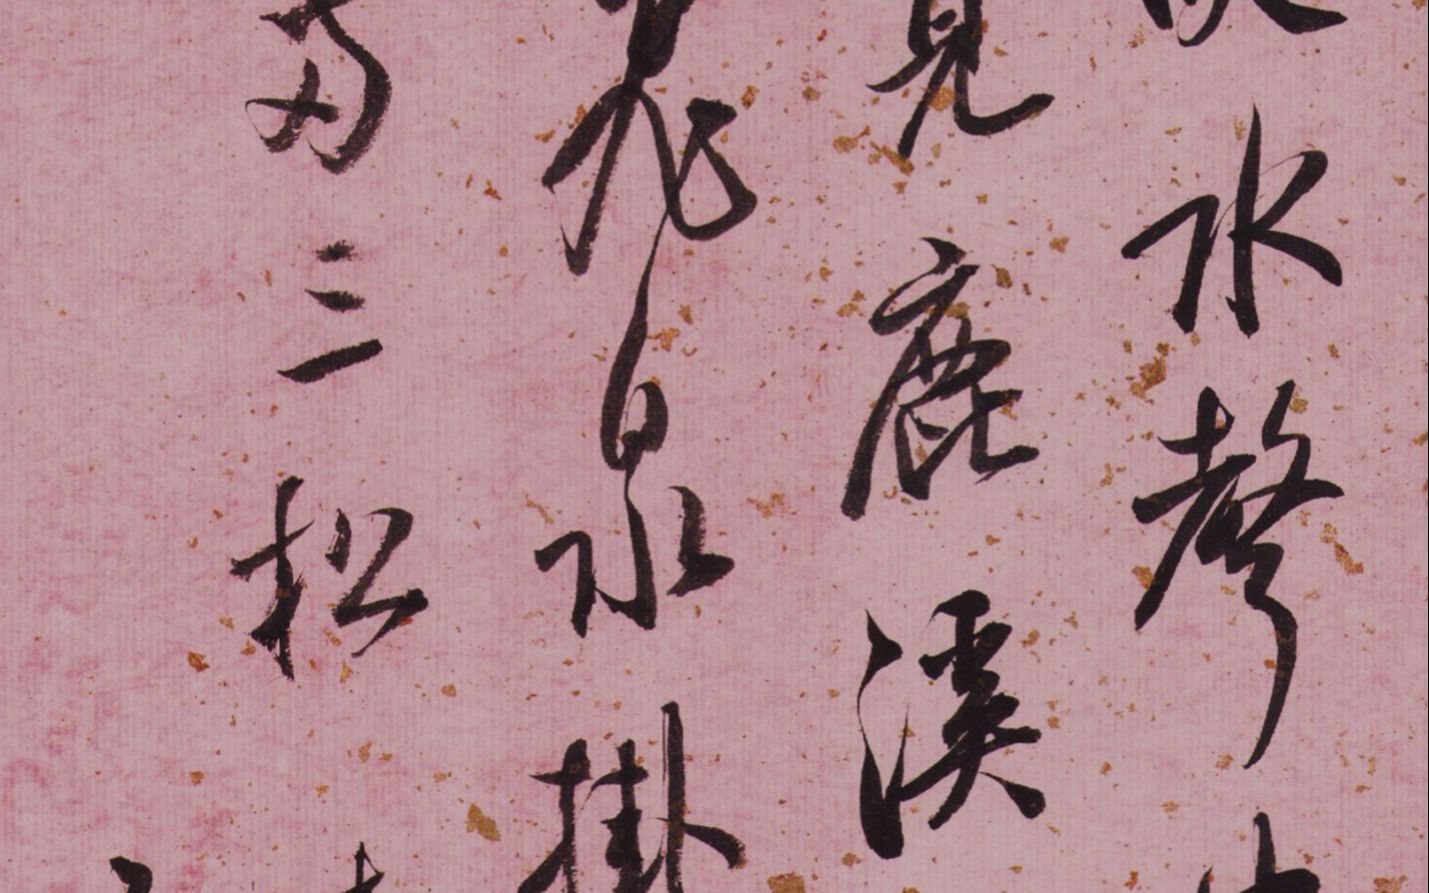 吠水聲中
見鹿溪
飛泉掛
兩三松